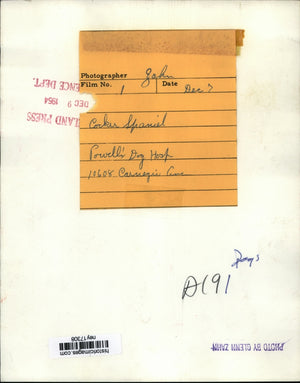 Photographer Zahn
Film No. 1 Date Dec 7
ENCE DEPT.
DEC 9 1954
LAND PRESS
Cocker Spaniel
Powell's Dog Hosp
10608 Carnegie Ave
Dogs
A(91
PHOTO BY GLENN ZAHN
ney17308
historicimages.com